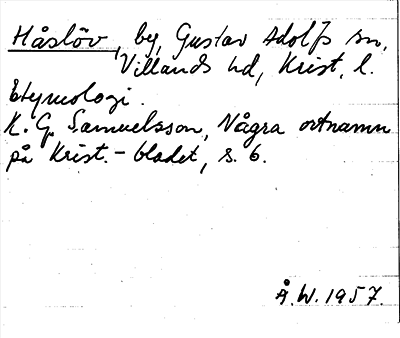 Håslöv, by, Gustav Adolfs sn,
Villands hd, Krist. l.
Etymologi.
K. G. Samuelsson, Några ortnamn
på Krist.-bladet, s. 6.
Å.W. 1957.